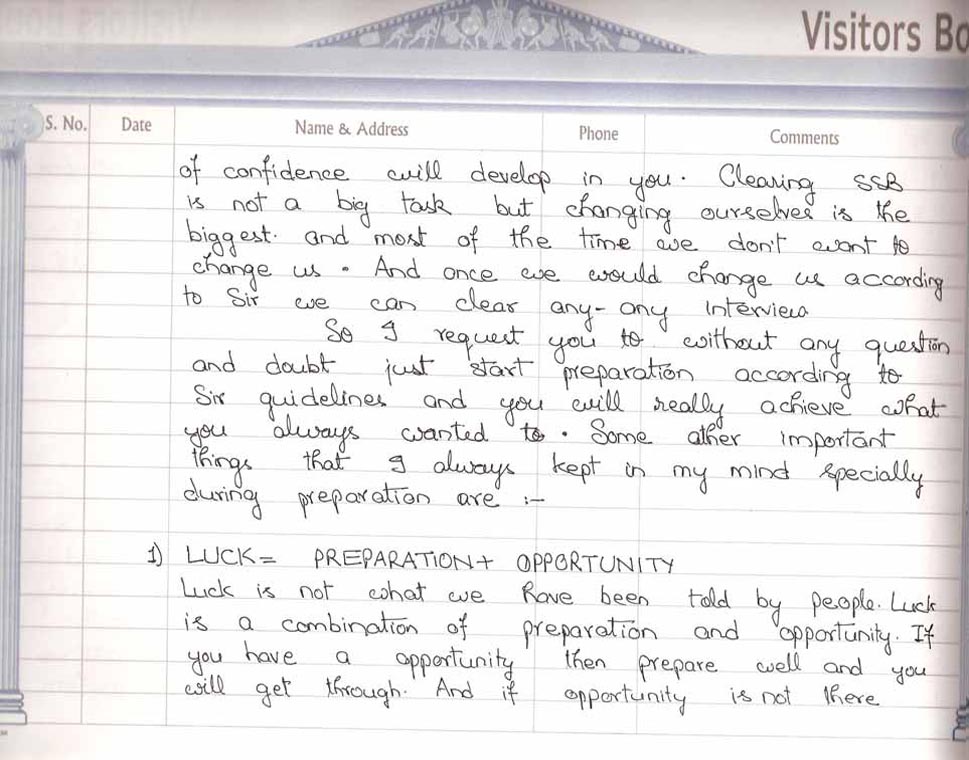 Visitors Bo
S. No. Date Name & Address Phone Comments
of confidence will develop in you. Clearing SSB
is not a big task but changing ourselves is the
biggest. and most of the time we don't want to
change us. And once we would change us according
to Sir we can clear any-any interview
So I request you to without any question
and doubt just start preparation according to
Sir guidelines and you will really achieve what
you always wanted to. Some other important
things that I always kept in my mind specially
during preparation are :-
1) LUCK = PREPARATION + OPPORTUNITY
Luck is not what we have been told by people. Luck
is a combination of preparation and opportunity. If
you have a opportunity then prepare well and you
will get through. And if opportunity is not there